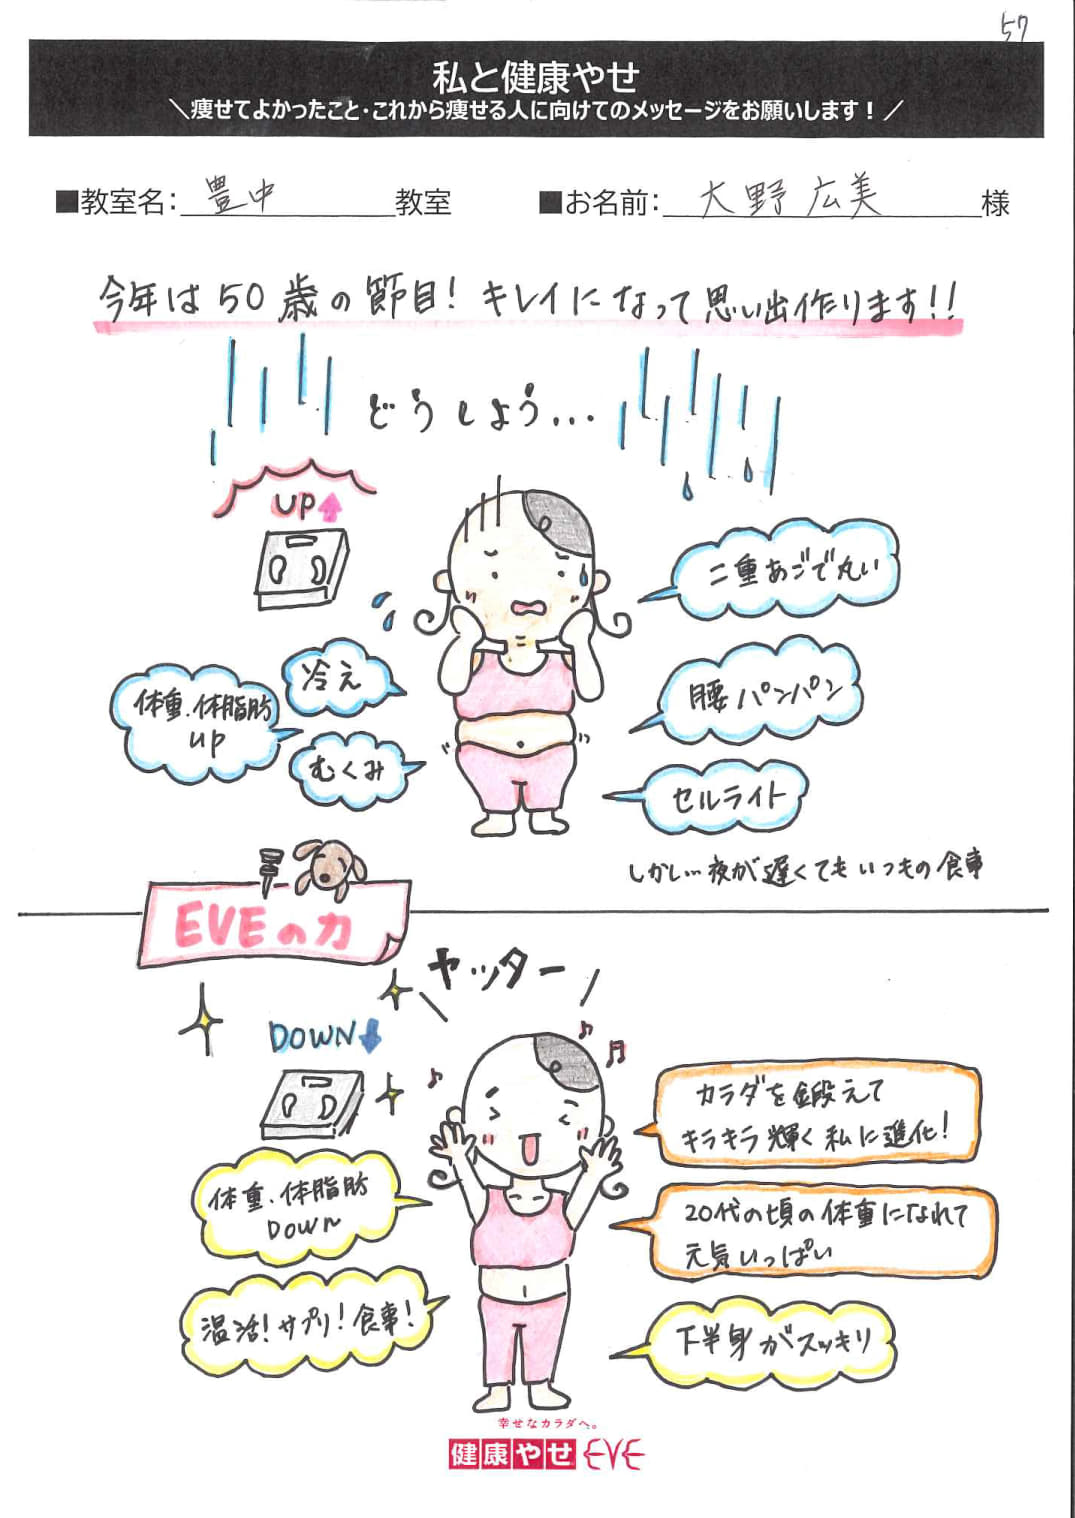 57
私と健康やせ
＼痩せてよかったこと・これから痩せる人に向けてのメッセージをお願いします！／
■教室名：豊中教室
■お名前：大野広美様
今年は50歳の節目！キレイになって思い出作ります!!
どうしよう...
UP↑
二重あごで丸い
冷え
体重、体脂肪
up
腰パンパン
むくみ
セルライト
しかし…夜が遅くてもいつもの食事
EVEの力
ヤッター
DOWN↓
カラダを鍛えて
キラキラ輝く私に進化！
体重、体脂肪
DOWN
20代の頃の体重になれて
元気いっぱい
温活！サプリ！食事！
下半身がスッキリ
幸せなカラダへ。
健康やせ EVE